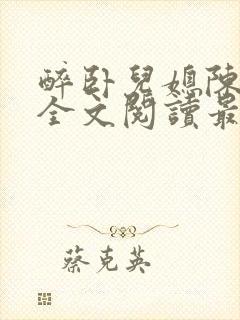 醉卧兒媳陳
全文閱讀最
蔡克英